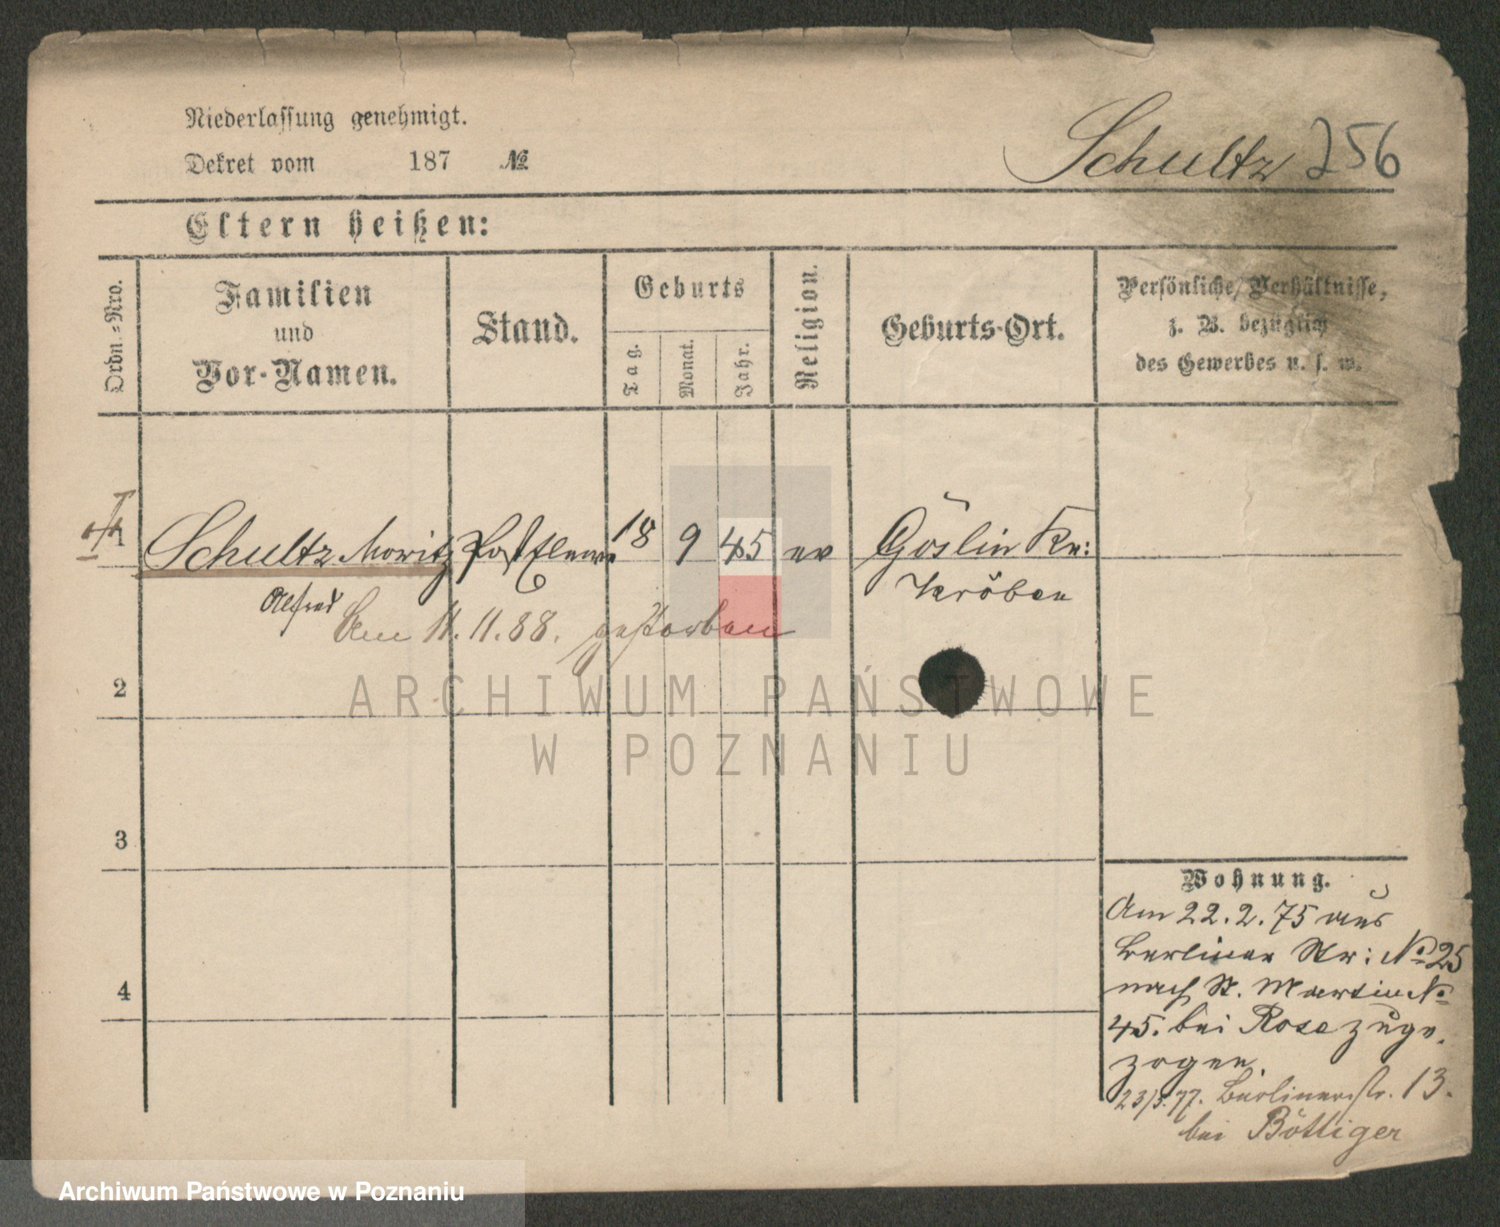 Niederlassung genehmigt.
Dekret vom 187 №
Schultz 256
Eltern heißen:
Ordn.-Nro.
Familien
und
Vor-Namen.
Stand.
Geburts
Tag.
Monat.
Jahr.
Religion.
Geburts-Ort.
Persönliche Verhältnisse,
z. B. bezüglich
des Gewerbes u. s. w.
1 Schultz Moritz 18 9 45 ev Göslin Kr:
Alfred Kröben
Am 11.11.88. gestorben
2
3
4
Wohnung.
Am 22.2.75 aus
Berliner Str: № 25
nach St. Martin №
45. bei Rose zuge-
zogen.
23/3.77. Berlinerstr. 13.
bei Böttiger
ARCHIWUM PAŃSTWOWE
W POZNANIU
Archiwum Państwowe w Poznaniu